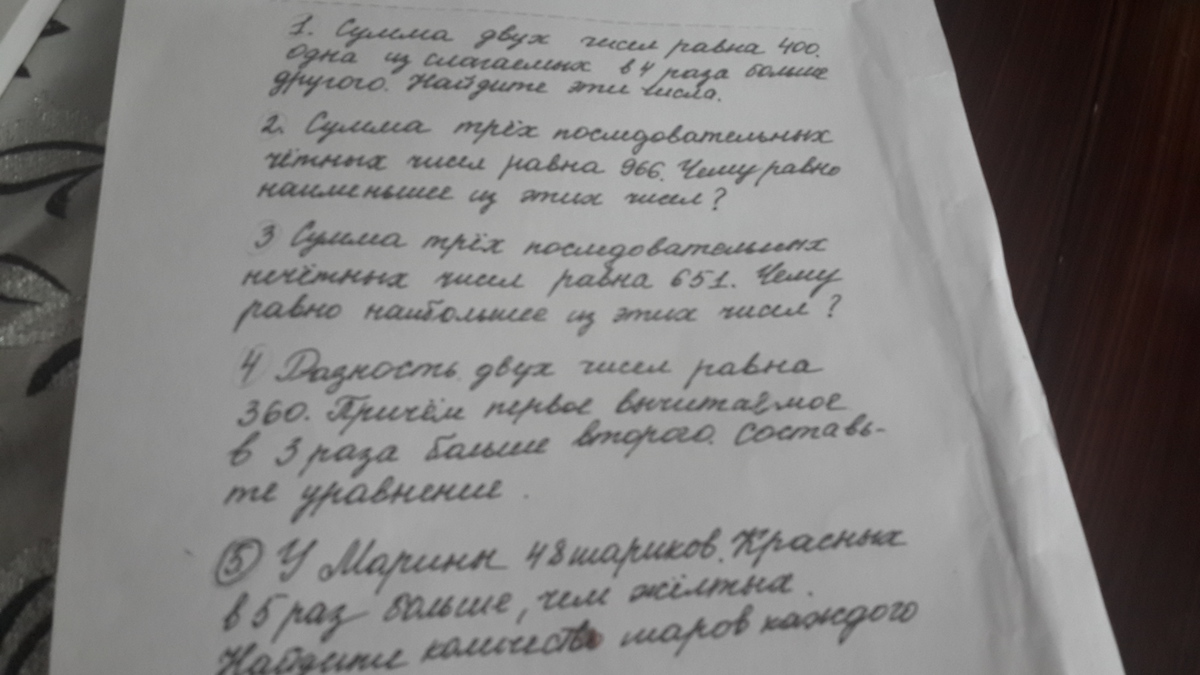 1. Сумма двух чисел равна 400.
одна из слагаемых в 4 раза больше
другого. Найдите эти числа.
2. Сумма трёх последовательных
чётных чисел равна 966. Чему равно
наименьшее из этих чисел?
3 Сумма трёх последовательных
нечётных чисел равна 651. Чему
равно наибольшее из этих чисел?
4 Разность двух чисел равна
360. Причём первое вычитаемое
в 3 раза больше второго. Составь-
те уравнение.
5 У Марины 48 шариков. Красных
в 5 раз больше, чем жёлтых.
Найдите количество шаров каждого